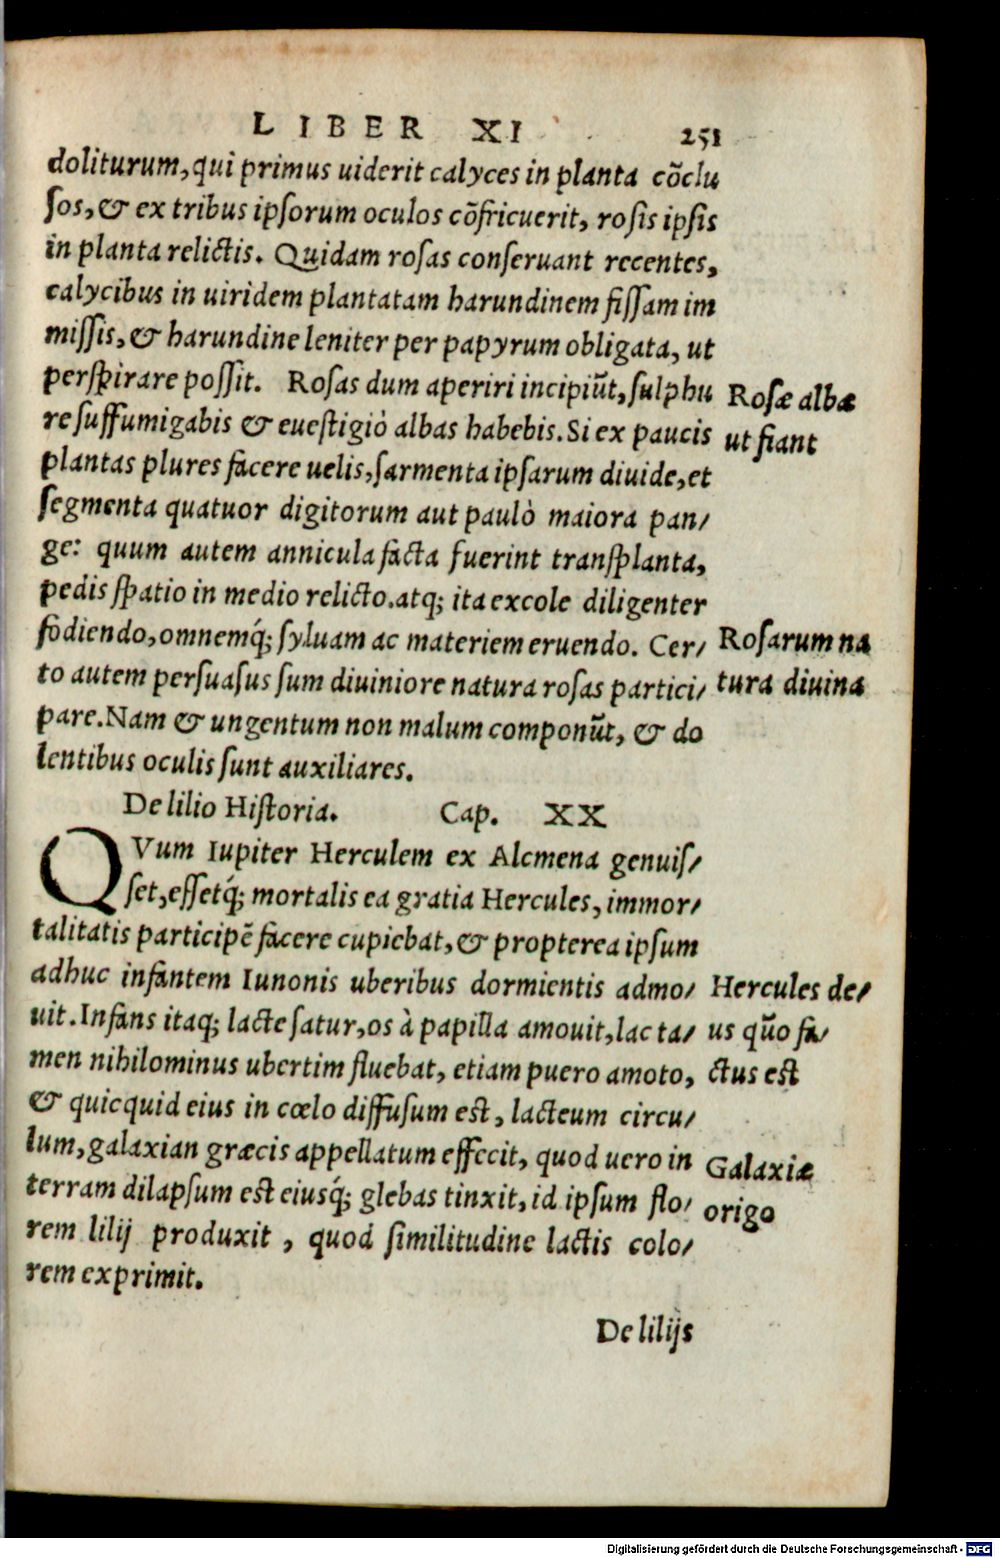 LIBER XI 251
doliturum, qui primus uiderit calyces in planta cõclu
sos, & ex tribus ipsorum oculos cõfricuerit, rosis ipsis
in planta relictis. Quidam rosas conseruant recentes,
calycibus in uiridem plantatam harundinem fissam im
missis, & harundine leniter per papyrum obligata, ut
perspirare possit. Rosas dum aperiri incipiũt, sulphu
re suffumigabis & euestigiò albas habebis. Si ex paucis
plantas plures facere uelis, sarmenta ipsarum diuide, et
segmenta quatuor digitorum aut paulò maiora pan/
ge: quum autem annicula facta fuerint transplanta,
pedis spatio in medio relicto. atq; ita excole diligenter
fodiendo, omnemq́; syluam ac materiem eruendo. Cer/
to autem persuasus sum diuiniore natura rosas partici/
pare. Nam & ungentum non malum componũt, & do
lentibus oculis sunt auxiliares.
Rosæ albæ
ut fiant
Rosarum na
tura diuina
De lilio Historia. Cap. XX
QVum Iupiter Herculem ex Alcmena genuis/
set, essetq́; mortalis ea gratia Hercules, immor/
talitatis participẽ facere cupiebat, & propterea ipsum
adhuc infantem Iunonis uberibus dormientis admo/
uit. Infans itaq; lacte satur, os à papilla amouit, lac ta/
men nihilominus ubertim fluebat, etiam puero amoto,
& quicquid eius in cœlo diffusum est, lacteum circu/
lum, galaxian græcis appellatum effecit, quod uero in
terram dilapsum est eiusq́; glebas tinxit, id ipsum flo/
rem lilij produxit, quod similitudine lactis colo/
rem exprimit.
Hercules de/
us quõ fa/
ctus est
Galaxiæ
origo
De lilijs
Digitalisierung gefördert durch die Deutsche Forschungsgemeinschaft - DFG